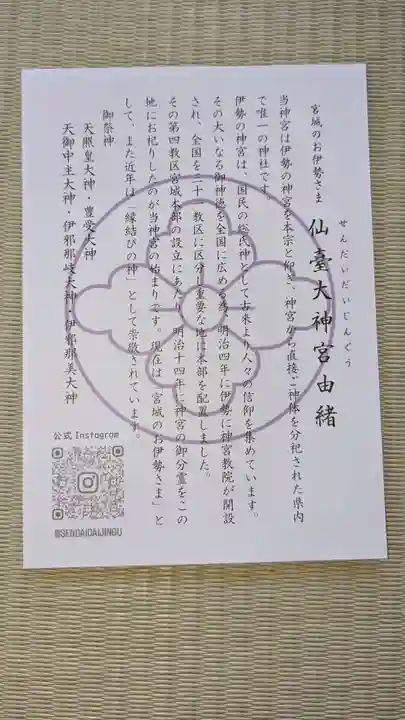 宮城のお伊勢さま
せんだいだいじんぐう
仙臺大神宮由緒
当神宮は伊勢の神宮を本宗と仰ぎ、神宮から直接ご神体を分祀された県内
で唯一の神社です。
伊勢の神宮は、国民の総氏神として古来より人々の信仰を集めています。
その大いなる御神徳を全国に広める為、明治四年に伊勢に神宮教院が開設
され、全国を三十一教区に区分し重要な地に本部を配置しました。
その第四教区宮城本部の設立にあたり、明治十四年に神宮の御分霊をこの
地にお祀りしたのが当神宮の始まりです。現在は「宮城のお伊勢さま」と
して、また近年は「縁結びの神」として崇敬されています。
御祭神
天照皇大神・豊受大神
天御中主大神・伊邪那岐大神・伊邪那美大神
公式 Instagram
@SENDAIDAIJINGU